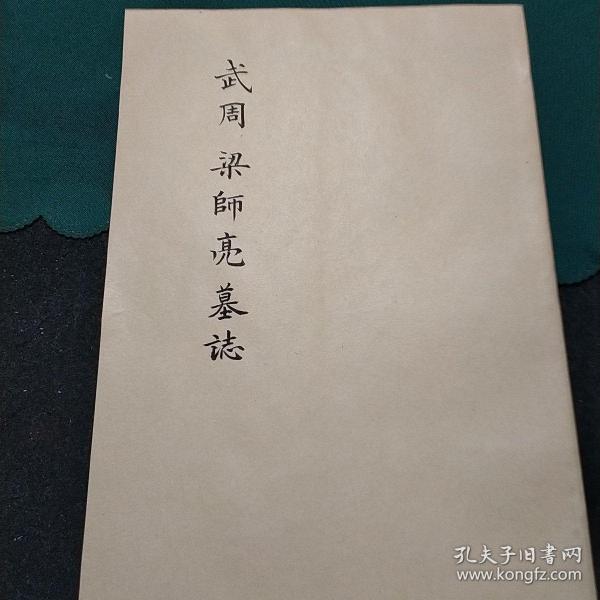 武周 梁師亮墓誌
孔夫子旧書网
www.kongfz.com